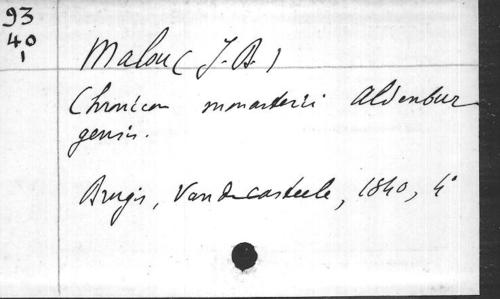 93
40
1
Malou (J.B.)
Chronicon monasterii Aldenbur
gensis.
Brugis, Vandecasteele, 1840, 4°